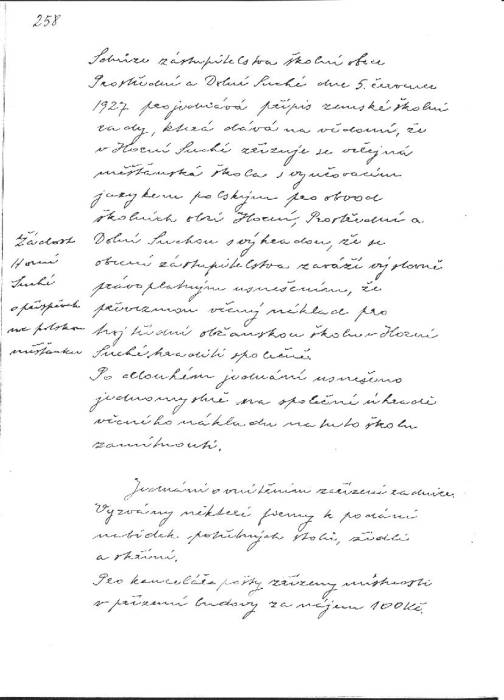 258
Schůze zástupitelstva školní obce
Prostřední a Dolní Suché dne 5. července
1927 projednává přípis zemské školní
rady, která dává na vědomí, že
v Horní Suché zřizuje se veřejná
měšťanská škola s vyučovacím
jazykem polským pro obvod
školních obcí Horní, Prostřední a
Dolní Suchou s výhradou, že se
obecní zástupitelstva zaváží výslovně
právoplatným usnesením, že
převezmou věcný náklad pro
troj třídní občanskou školu v Horní
Suché, hraditi společně.
Po dlouhém jednání usneseno
jednomyslně na společné úhradě
věcného nákladu na tuto školu
zamítnouti.
Žádost
Horní
Suché
o příspěvek
na polskou
měšťanku
Jednání o vnitřním zařízení radnice.
Vyzvány některé firmy k podání
nabídek potřebných stolů, židlí
a skříní.
Pro kancelář pošty zřízeny místnosti
v přízemí budovy za nájem 100 Kč.